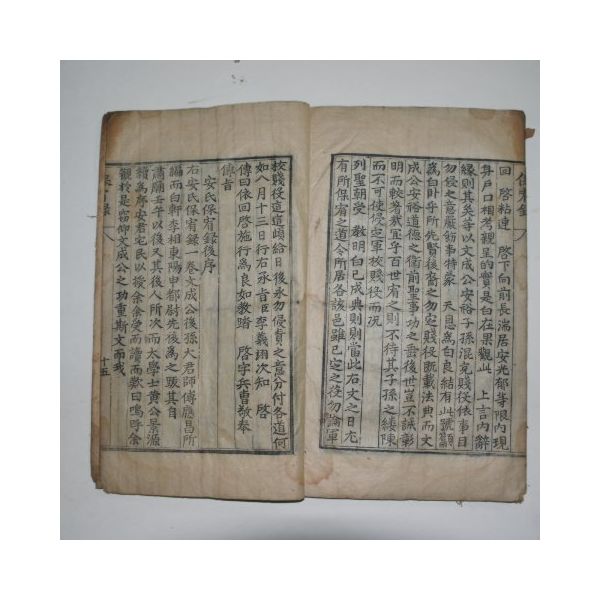 回 啓粘連 啓下向前長湍居安光郁等限內現
身戶口相考觀呈的實是白在果觀此 上言內辭
緣則其矣等以文成公安裕子孫混充賤役依事目
勿侵之意嚴飭事特蒙 天恩爲白良結有此號額
爲白乎所先賢後裔之勿定賤役旣載法典而文
成公安裕道德之衛前聖事功之雲後世豈不誠彰
明而較著哉宜乎百世宥之則不待其子孫之縷陳
而不可使侵定軍校賤役而況
列聖朝受 敎明白已成典則則當此右文之日尤
有所保宥之道令所居各該邑雖已定之役勿論軍
校賤役這這頉給日後永勿侵責之意分付各道何
如八月十三日行右承旨臣李義翊次知 啓
傳曰依回啓施行爲良如敎 啓字兵曹敬奉
傳旨
安氏保宥錄後序
右安氏保宥錄一卷文成公後孫大君師傅應昌所
編而白軒李相東陽申都尉先後爲之跋其自
肅廟壬午以後又其後人所次而太學士黃公景源
續爲序安君宅民以授余余受而讀而歎曰嗚呼余
觀於是窃仰文成公之功重斯文而我
十五